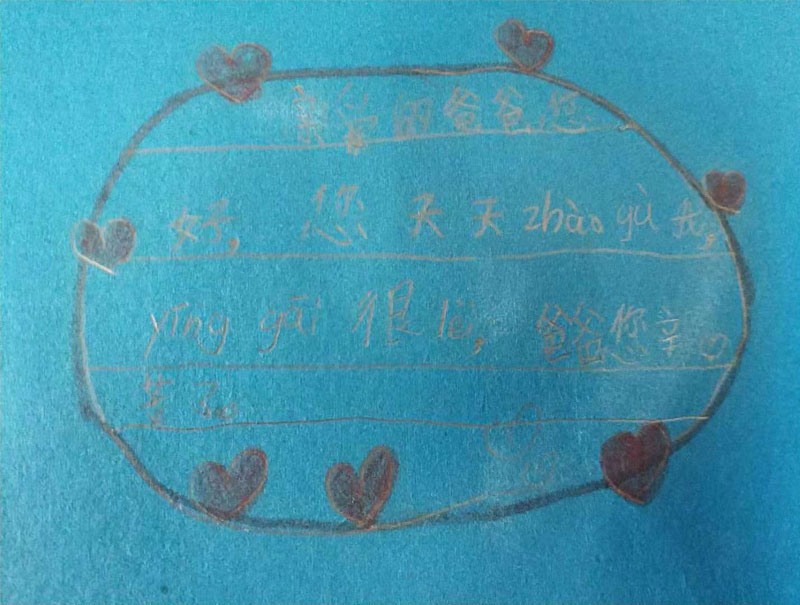 亲爱的爸爸,您
好,您天天zhào gù我,
yīng gāi很lèi,爸爸您辛
苦了。